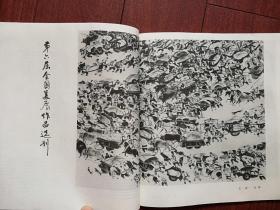 第六届全国美展作品选刊